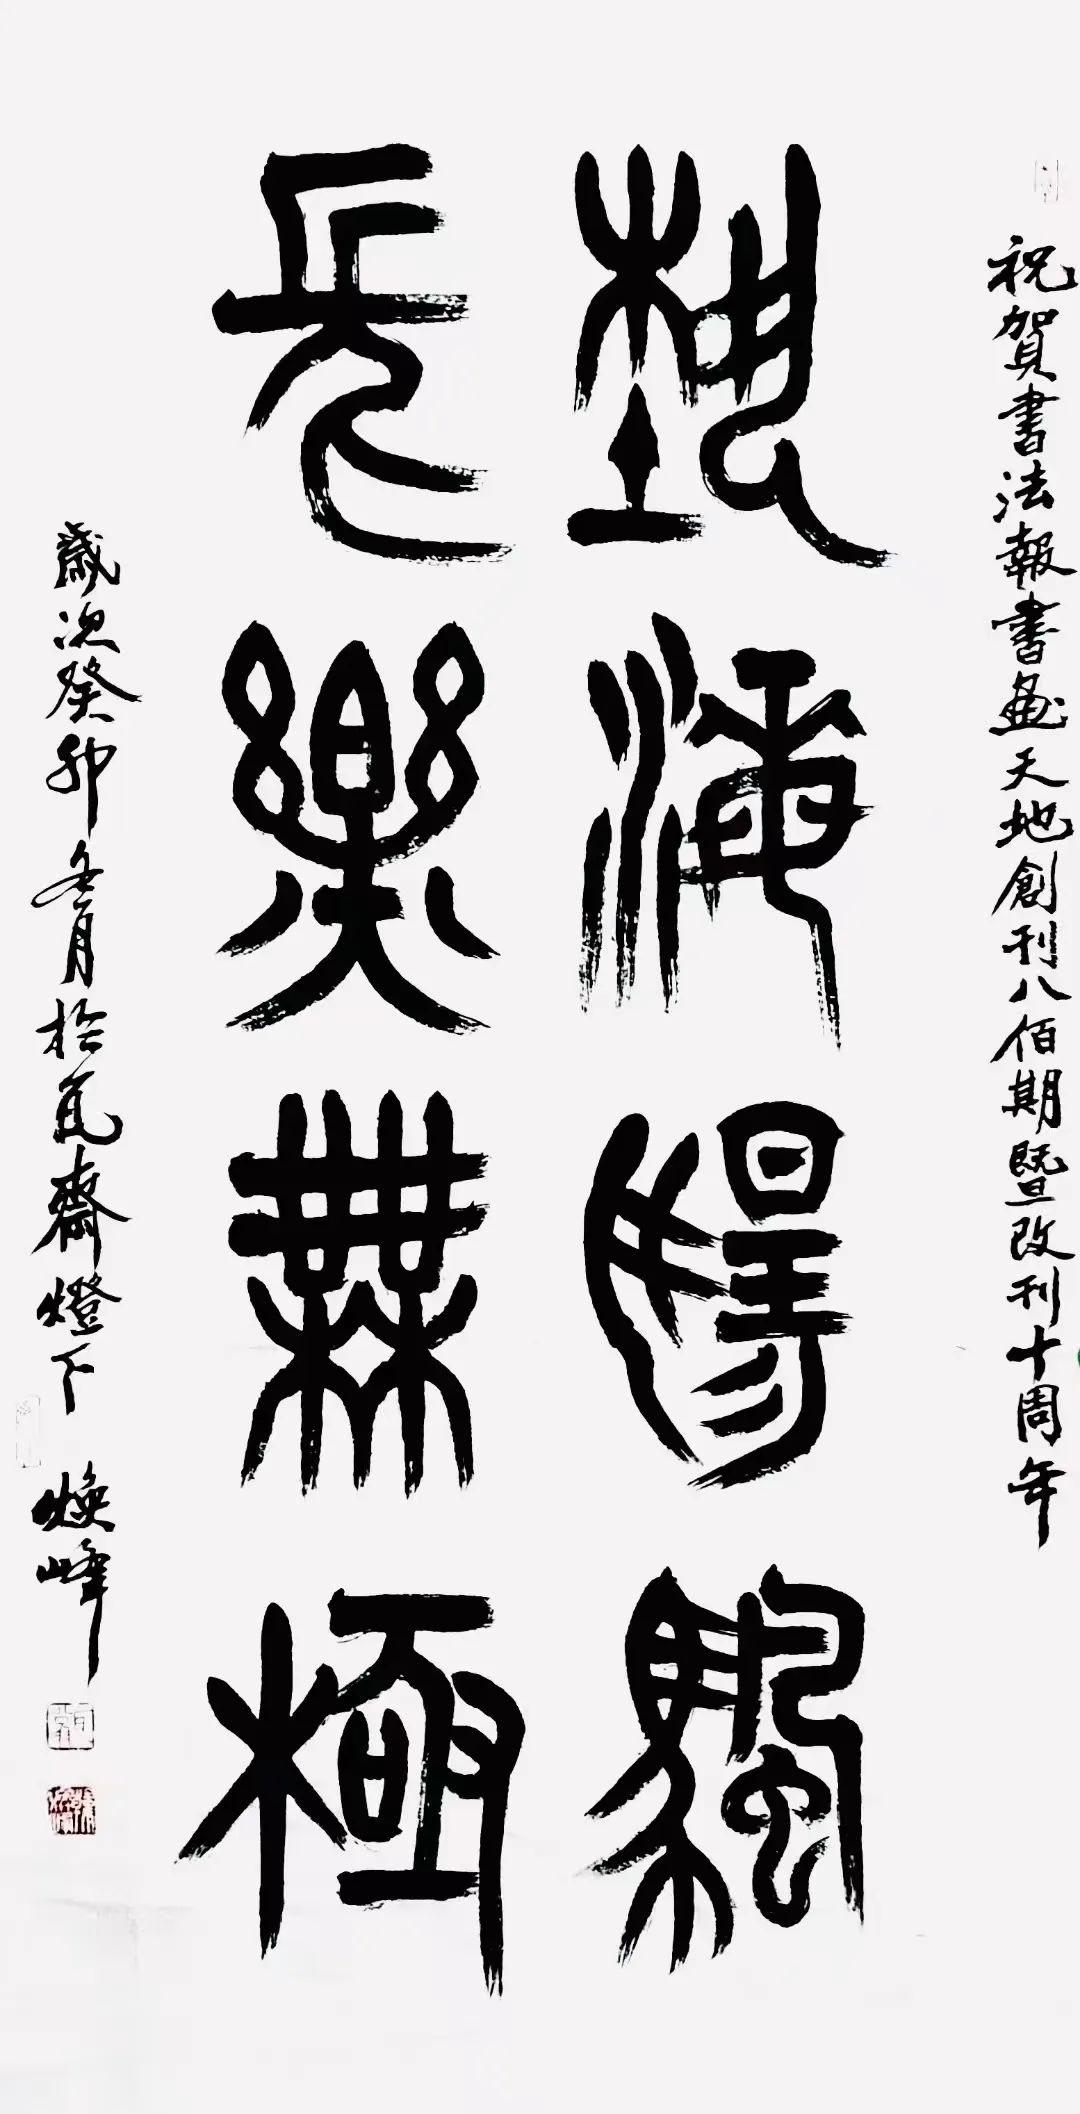 祝賀書法報書畫天地創刊八佰期暨改刊十周年
埶海陽颿
長樂無極
歲次癸卯冬月於瓦齋燈下 煥峰